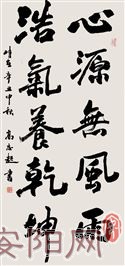 心源無風雨
浩氣養乾坤
時在辛丑中秋 高志超書
安阳网